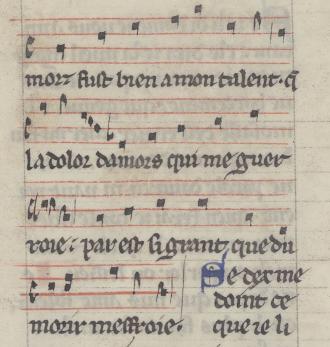 mort fust bien a mon talent. q̃
la dolor damors qui me guer
roie. par est si grant, que du
morir meffroie.
Se dex me
doint ce
que ie li